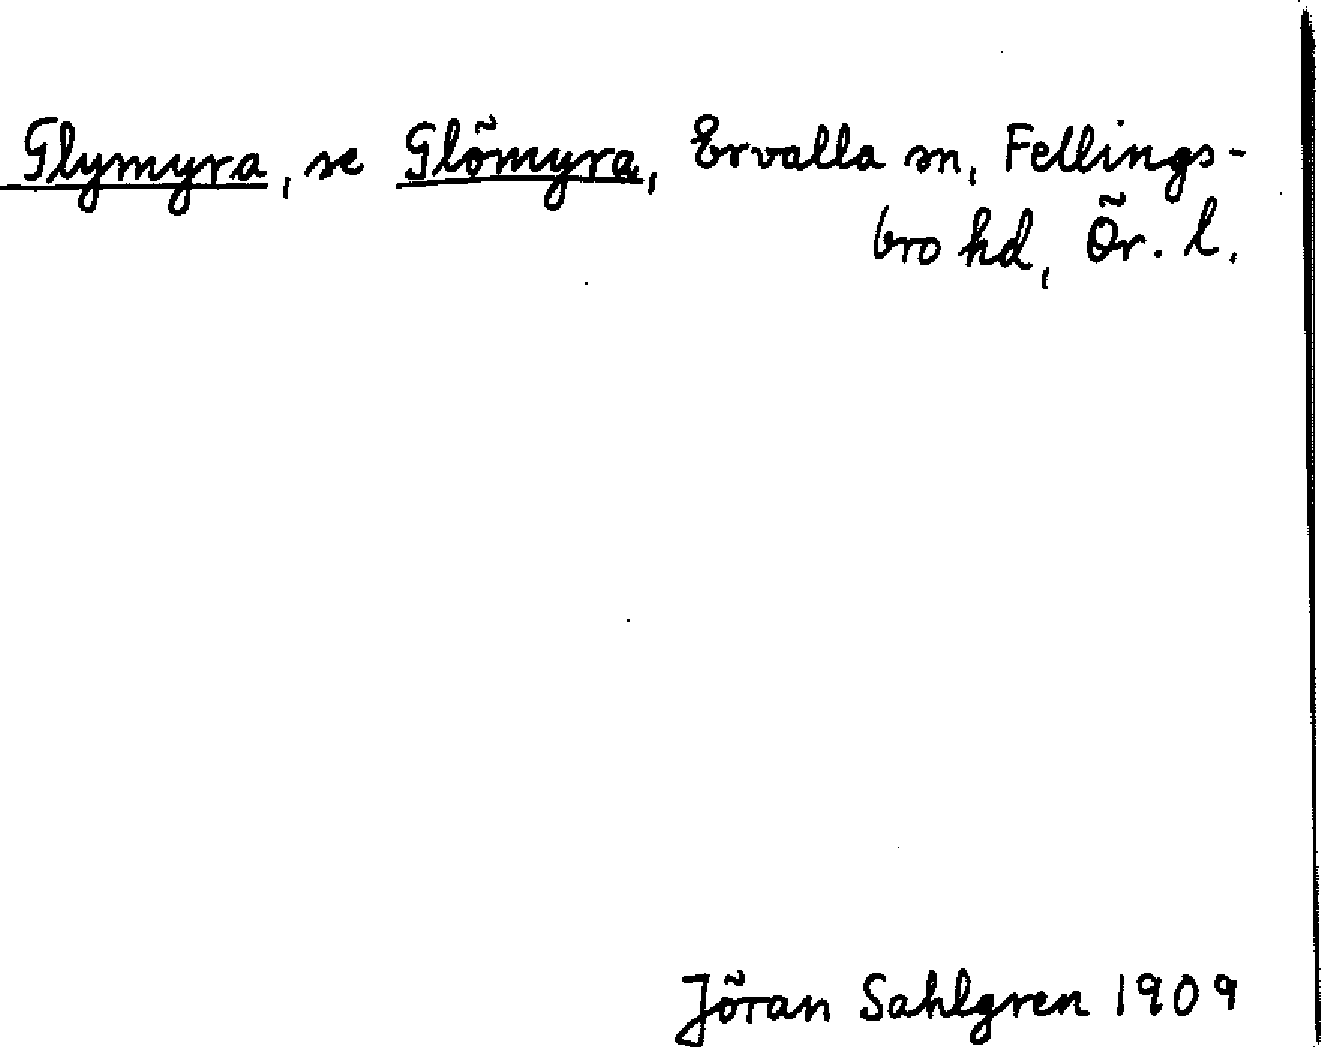 Glymyra, se Glömyra, Ervalla sn, Fellings-
bro hd, Ör. l.
Jöran Sahlgren 1909